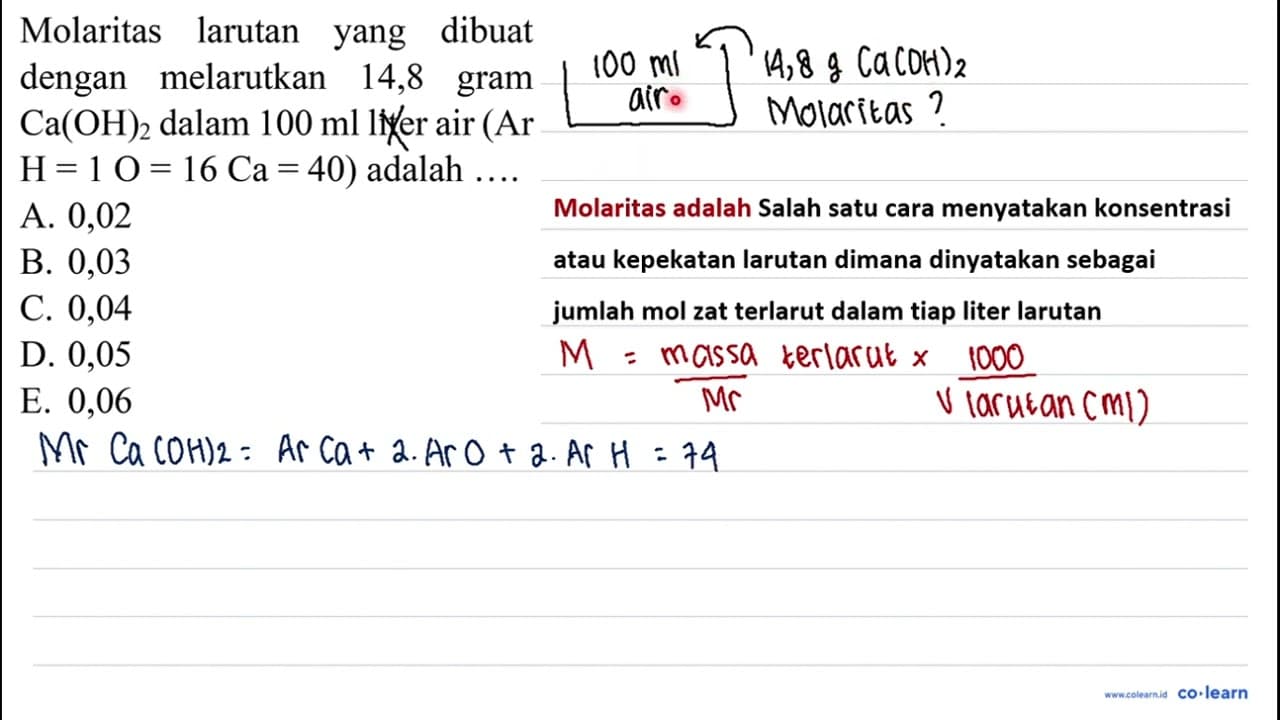 Molaritas larutan yang dibuat
dengan melarutkan 14,8 gram
Ca(OH)₂ dalam 100 ml liter air (Ar
H = 1 O = 16 Ca = 40) adalah ….
A. 0,02
B. 0,03
C. 0,04
D. 0,05
E. 0,06
100 ml
air
14,8 g Ca(OH)₂
Molaritas ?
Molaritas adalah Salah satu cara menyatakan konsentrasi
atau kepekatan larutan dimana dinyatakan sebagai
jumlah mol zat terlarut dalam tiap liter larutan
M = massa terlarut x 1000
Mr V larutan (ml)
Mr Ca(OH)2 = Ar Ca + 2. Ar O + 2. Ar H = 74
www.colearn.id co·learn